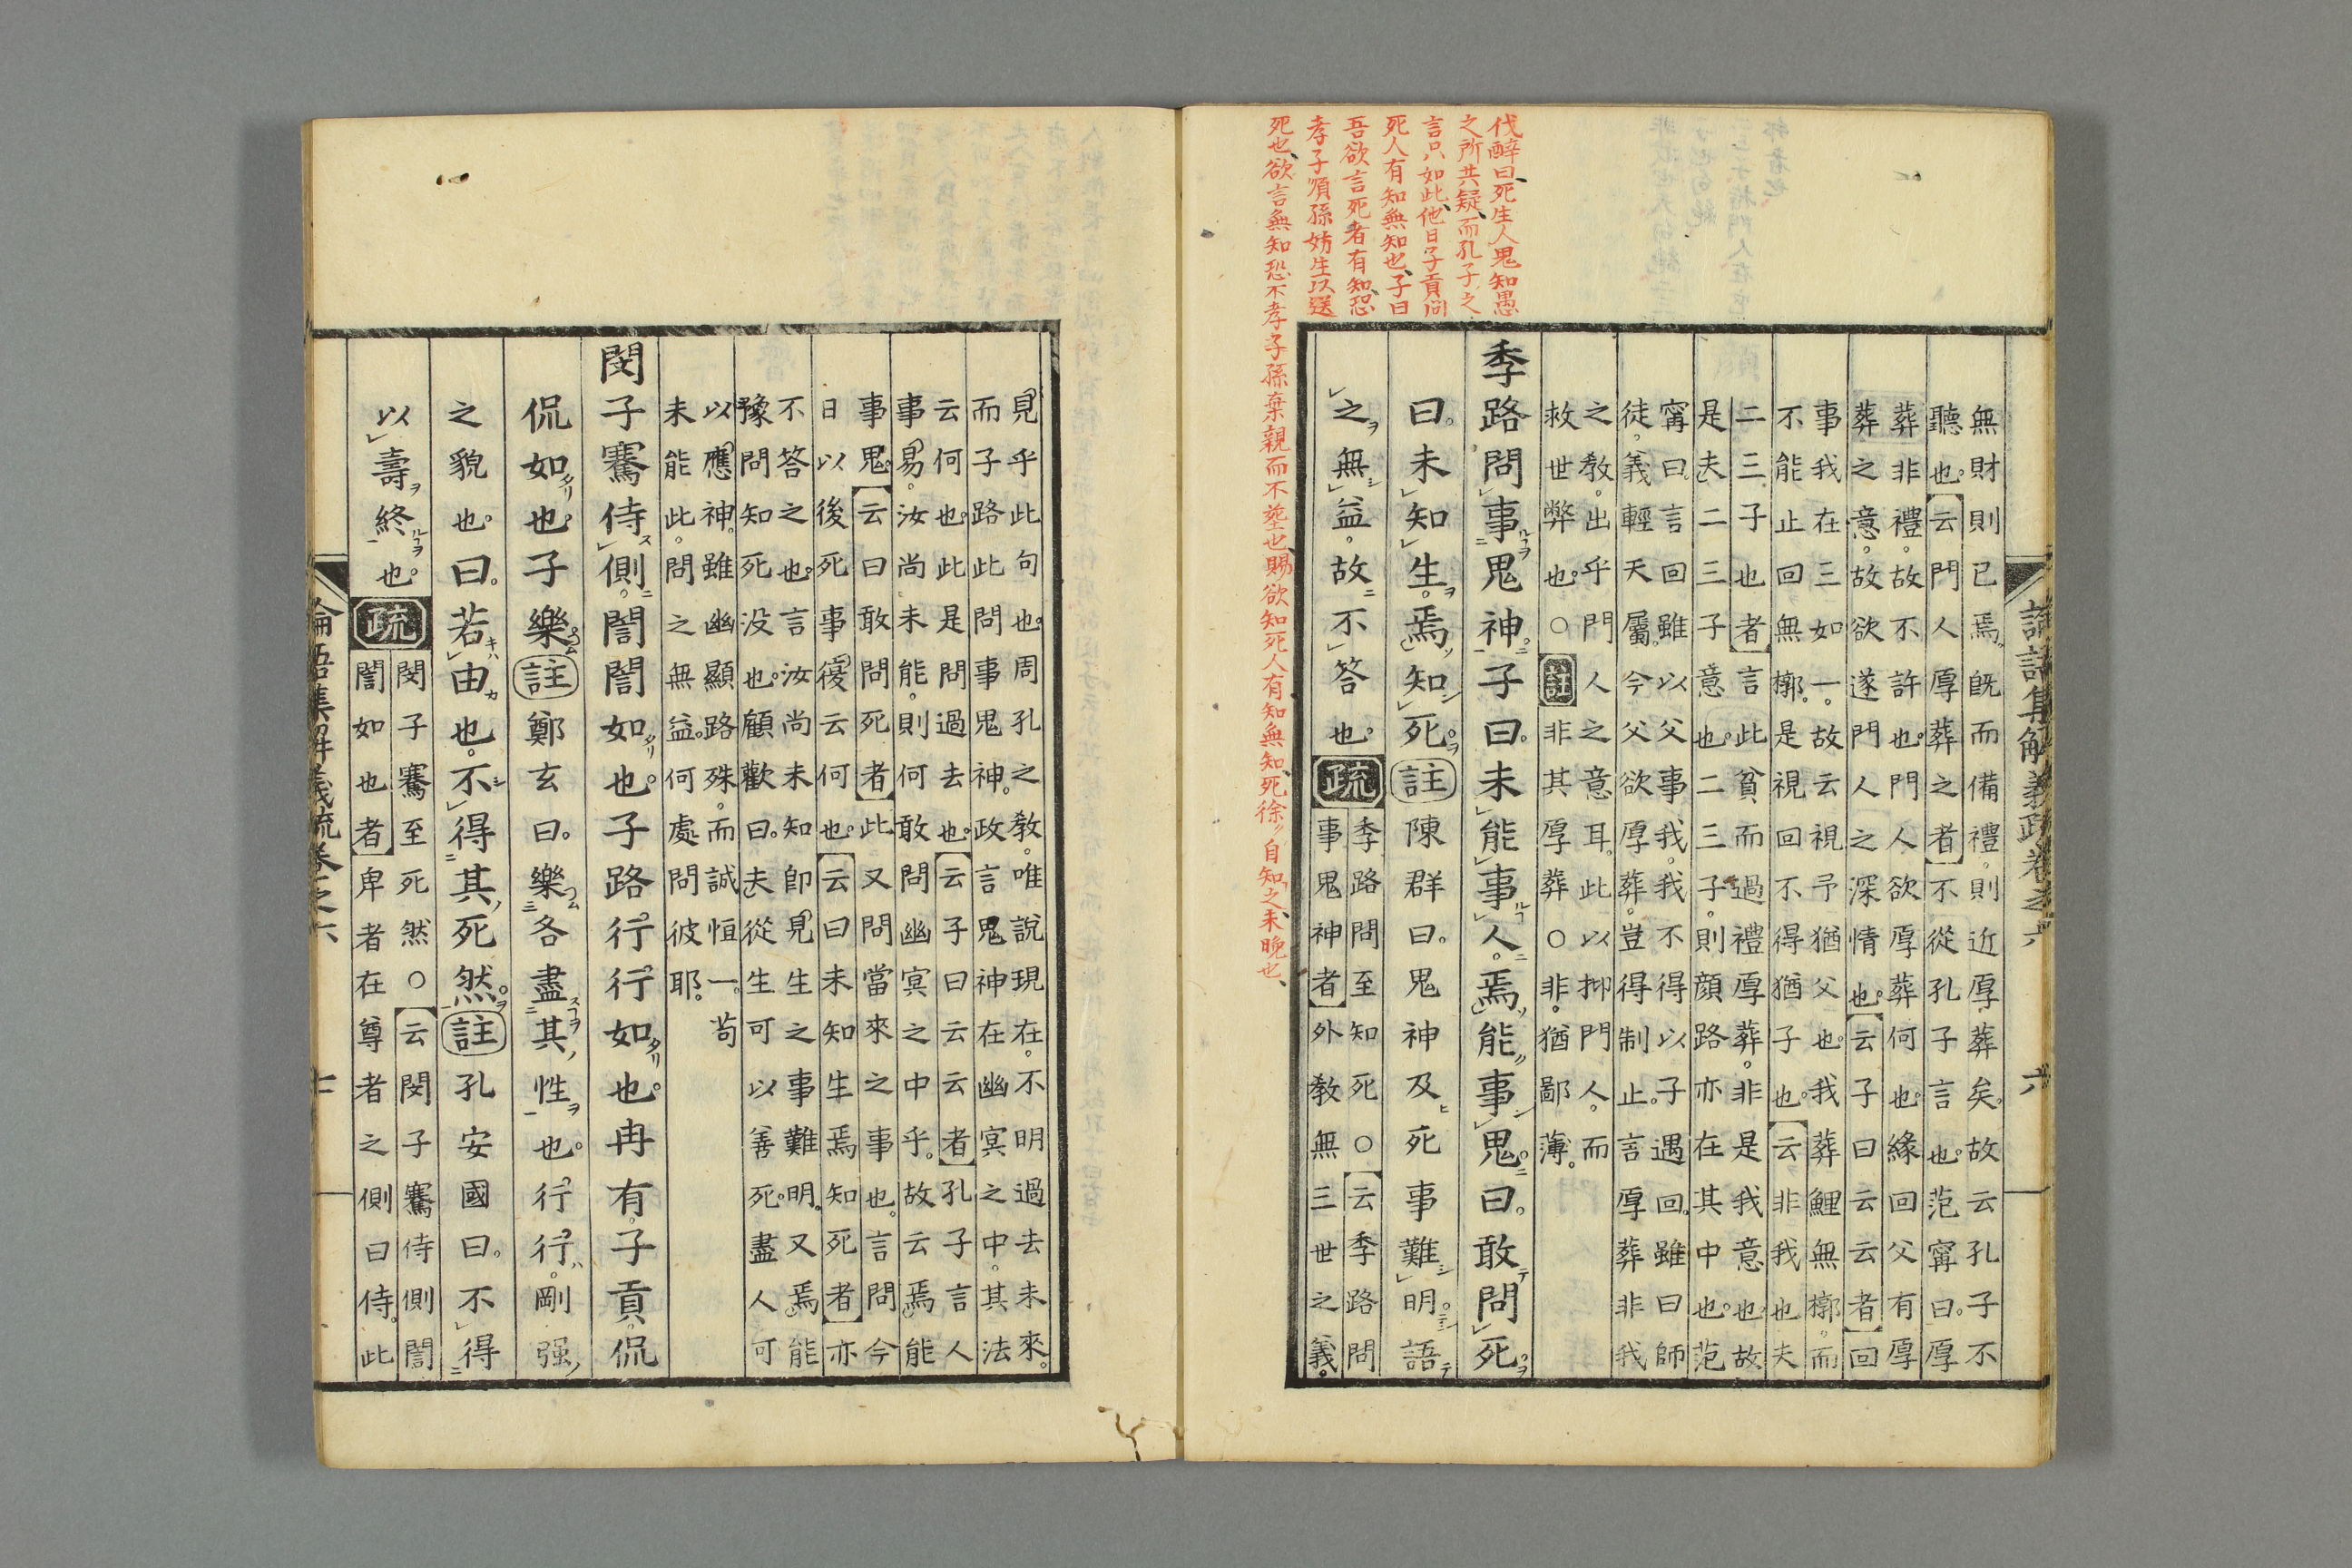 論語集解義疏卷之六 六
無財則已焉。既而備禮。則近厚葬矣。故云孔子不
聽也。【云門人厚葬之者】不從孔子言也。范甯曰。厚
葬非禮。故不許也。門人欲厚葬何也。緣回父有厚
葬之意。故欲遂門人之深情也。【云子曰云云者】回
事我在三如一。故云視予猶父也。我葬鯉無槨。而
不能止回無槨。是視回不得猶子也。【云非我也夫
二三子也者】言此貧而過禮厚葬。非是我意也。故
是夫二三子意也。二三子。則顔路亦在其中也。范
甯曰。言回雖以父事我。我不得以子遇回。雖曰師
徒。義輕天屬。今父欲厚葬。豈得制止。言厚葬非我
之教。出乎門人之意耳。此以抑門人。而
救世弊也。○註非其厚葬○非。猶鄙薄。
季路問事鬼神。子曰。未能事人。焉能事鬼。曰。敢問死
曰。未知生。焉知死。註陳群曰。鬼神及死事難明。語
之無益。故不答也。疏
季路問至知死○【云季路問
事鬼神者】外教無三世之義。
伐醉曰、死生人鬼知愚
之所共疑、而孔子之
言只如此、他日子貢問
死人有知無知也、子曰
吾欲言死者有知、恐
孝子順孫妨生以送
死也、欲言無知恐不孝子孫棄親而不塟也、賜欲知死人有知無知、死徐〃自知之、未晚也、
見乎此句也。周孔之教。唯說現在。不明過去未來。
而子路此問事鬼神。政言鬼神在幽冥之中。其法
云何也。此是問過去也。【云子曰云云者】孔子言人
事易。汝尚未能。則何敢問幽冥之中乎。故云焉能
事鬼。【云曰敢問死者】此又問當來之事也。言問今
日以後死事復云何也。【云曰未知生焉知死者】亦
不答之也。言汝尚未知即見生之事難明。又焉能
豫問知死没也。顧歡曰。夫從生可以善死。盡人可
以應神。雖幽顯路殊。而誠恒一。苟
未能此。問之無益。何處問彼耶。
閔子騫侍側。誾誾如也。子路行行如也。冉有。子貢。侃
侃如也。子樂註鄭玄曰。樂各盡其性也。行行。剛强
之貌也。曰。若由也。不得其死然。註孔安國曰。不得
以壽終也。疏
閔子騫至死然○【云閔子騫侍側誾
誾如也者】卑者在尊者之側曰侍。此
論語集解義疏卷之六 七